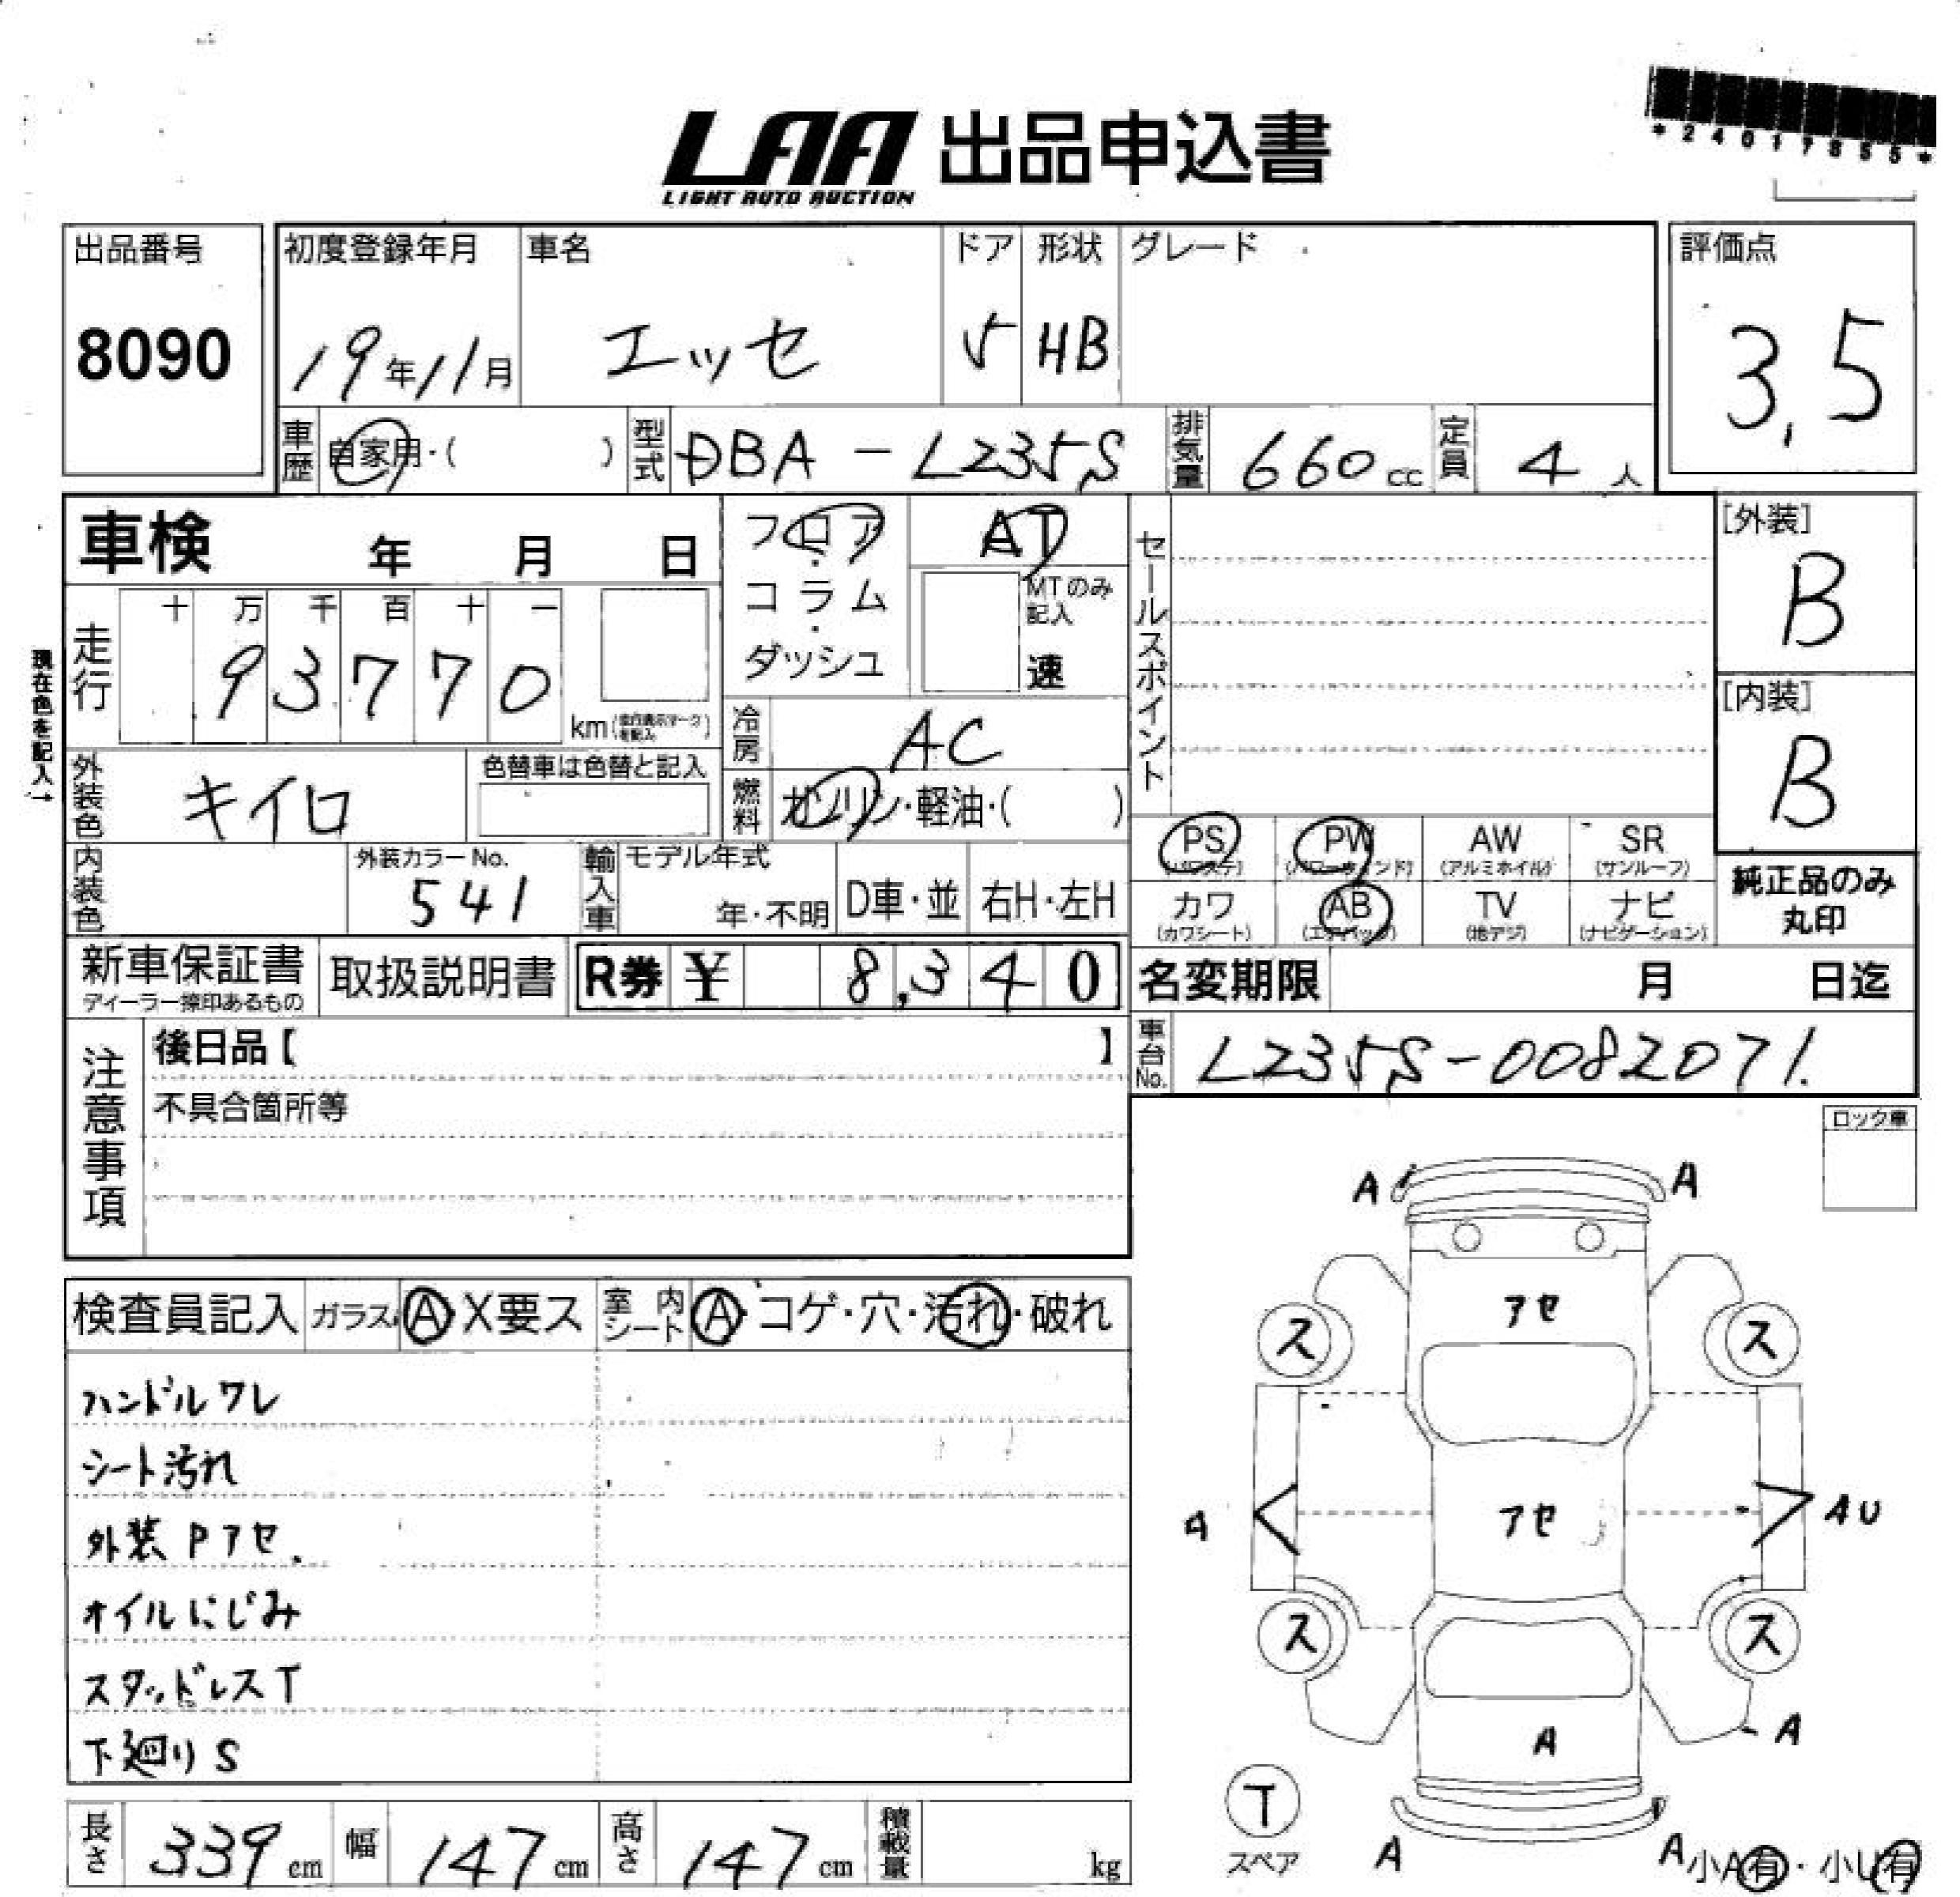 *24017855*
LAA 出品申込書
LIGHT AUTO AUCTION
出品番号
8090
初度登録年月
19年11月
車名
エッセ
ドア
5
形状
HB
グレード
評価点
3.5
車歴 自家用・( )
型式 DBA-L235S
排気量 660cc
定員 4人
車検 年 月 日
フロア・コラム・ダッシュ
AT
MTのみ記入
速
セールスポイント
[外装]
B
[内装]
B
現在色を記入→
走行
十 万 千 百 十 一
93770
km(走行表示マークを記入)
冷房 AC
燃料 ガソリン・軽油・( )
外装色 キイロ
色替車は色替と記入
内装色
外装カラーNo.
541
輸入車
モデル年式
年・不明
D車・並
右H・左H
PS (パワステ)
PW (パワーウィンド)
AW (アルミホイル)
SR (サンルーフ)
カワ (カワシート)
AB (エアバッグ)
TV (地デジ)
ナビ (ナビゲーション)
純正品のみ
丸印
新車保証書
ディーラー捺印あるもの
取扱説明書
R券 ¥ 8,340
名変期限 月 日迄
車台No. L235S-0082071
注意事項
後日品【 】
不具合箇所等
ロック車
検査員記入 ガラス A・X要ス 室内シート A・コゲ・穴・汚れ・破れ
ハンドルワレ
シート汚れ
外装Pアセ.
オイルにじみ
スタッドレスT
下廻りS
A
A
アセ
ス
ス
アセ
A
AU
ス
ス
A
A
T
スペア
A
A
小A有・小U有
長さ 339cm
幅 147cm
高さ 147cm
積載量 kg